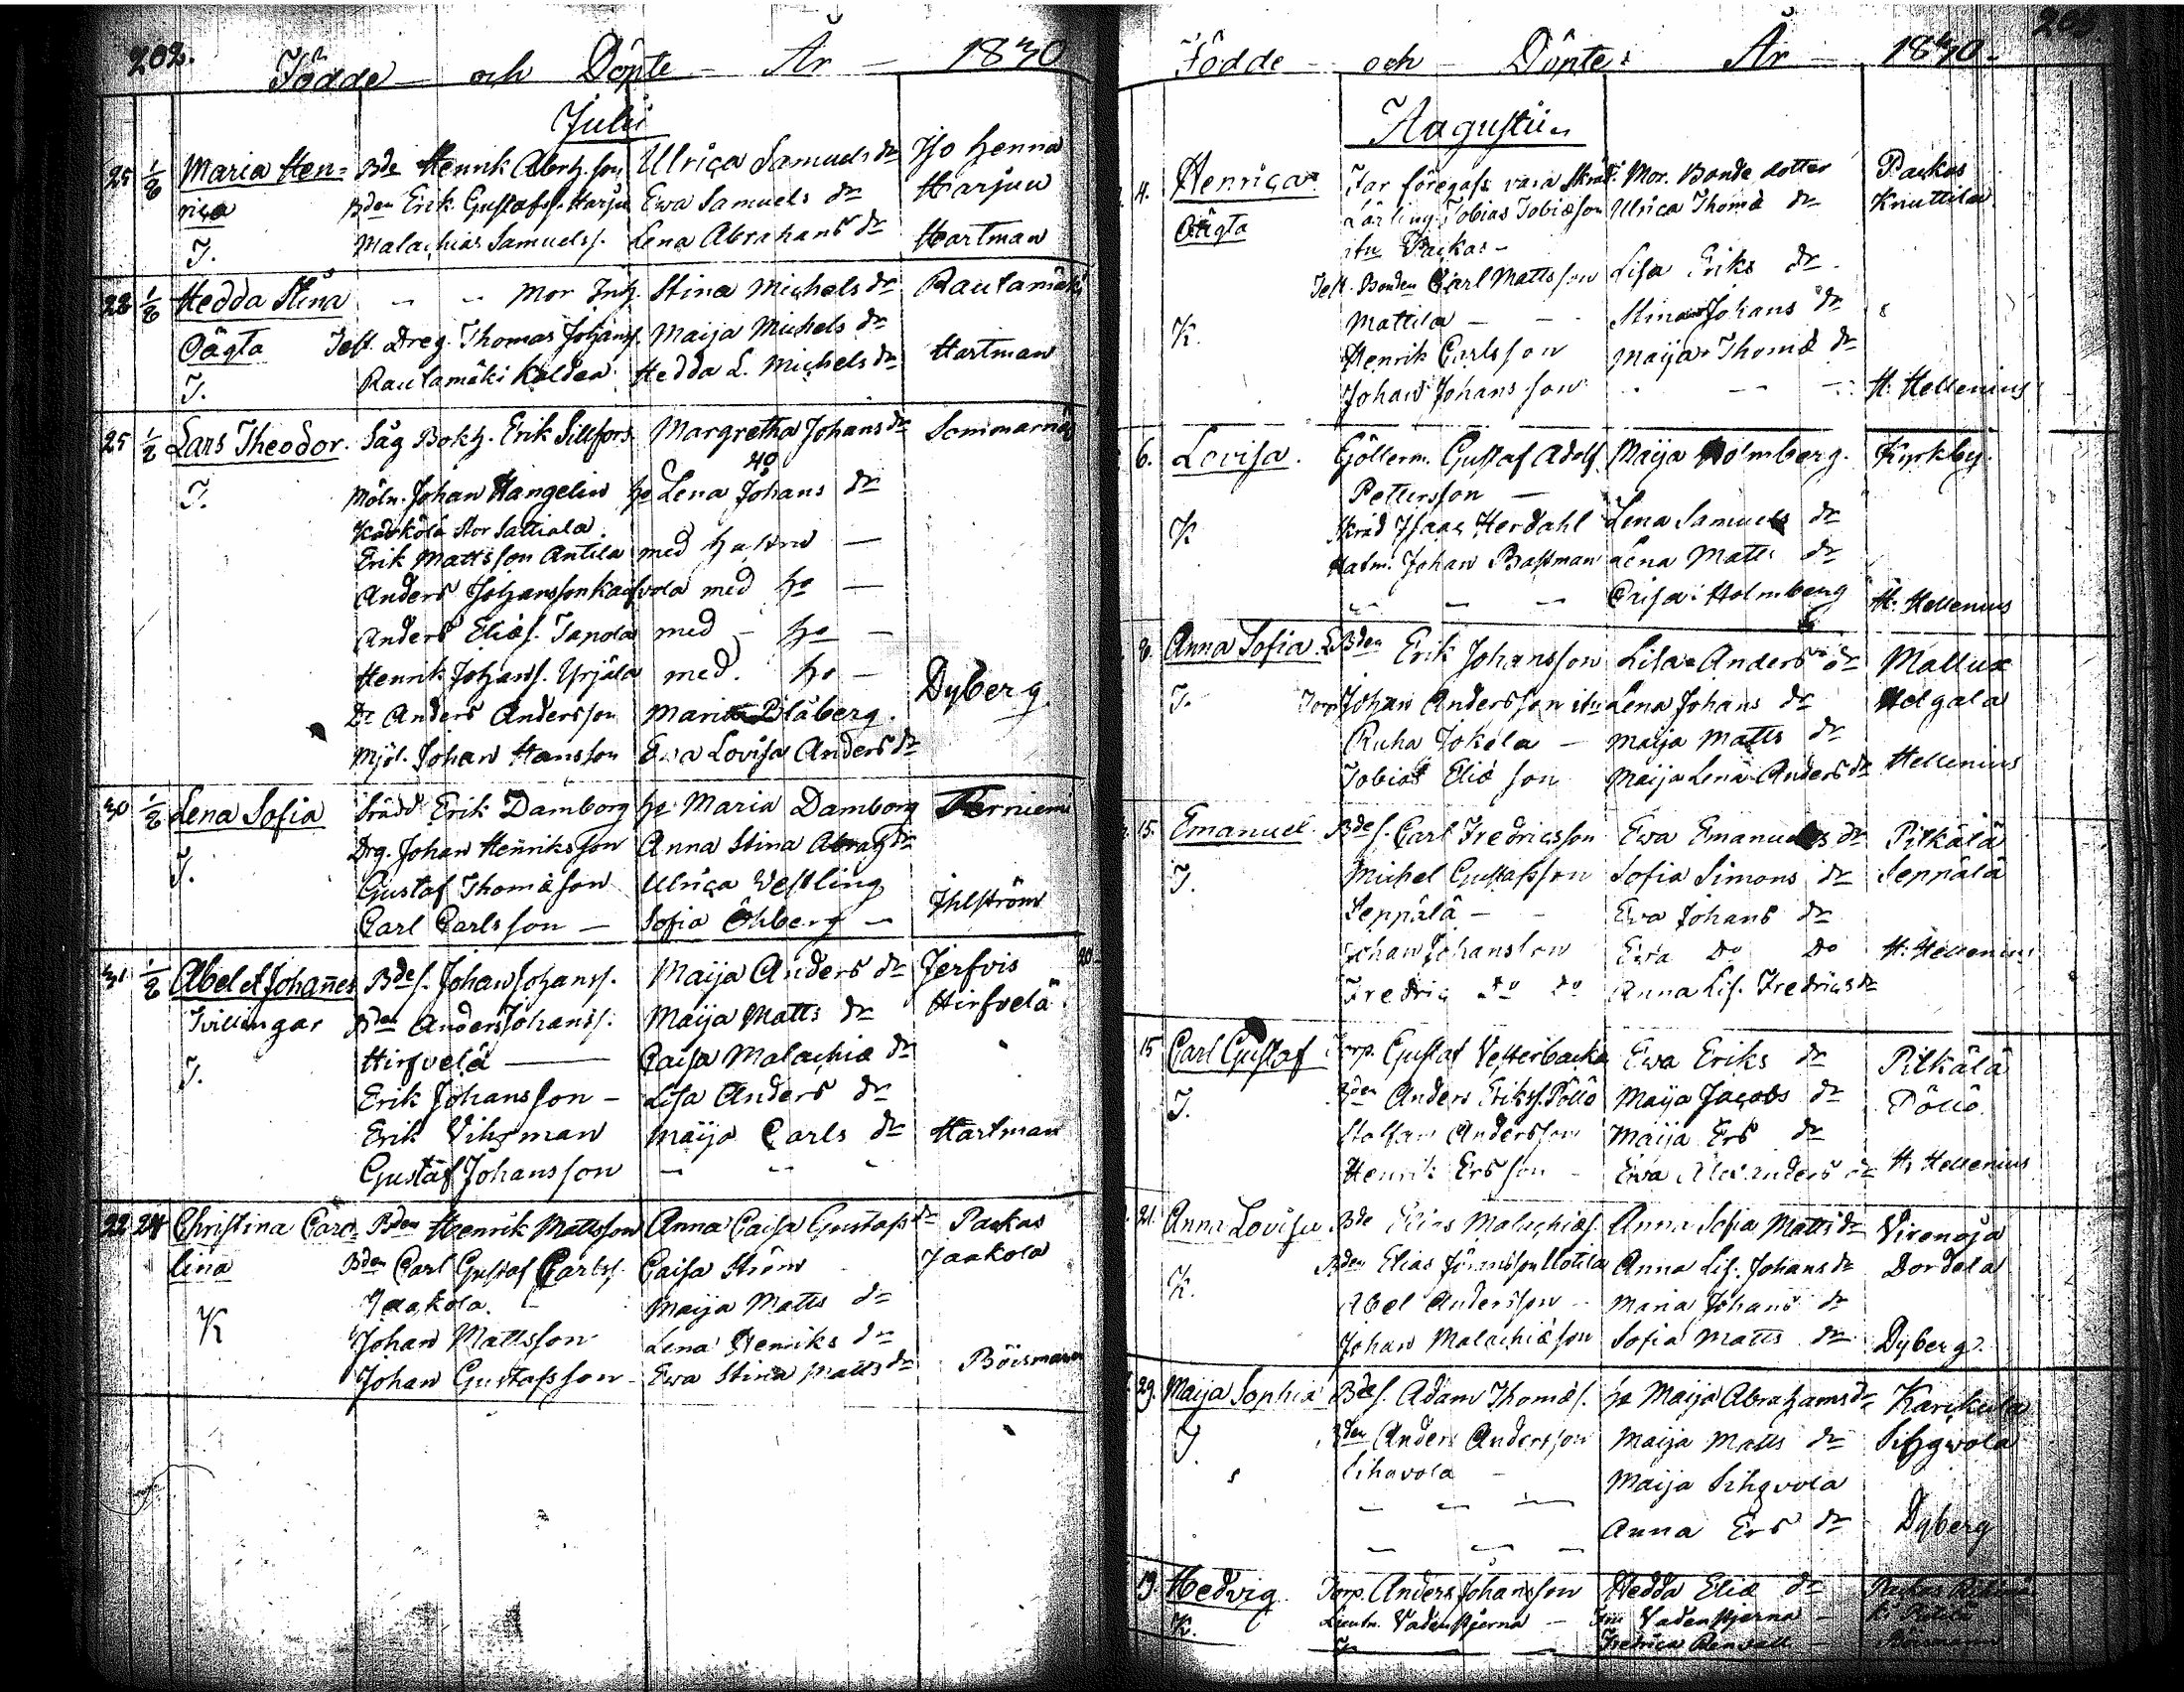 202.
Födde och Döpte År 1830
Julii
25 1/8 Maria Hen= Bde Henrik Abrh.son Ulrica Samuels dr Iso Henna
rica Bden Erik Gustafs. Harju Ewa Samuels dr Harjun
T. Malachias Samuelss. Lena Abrahams dr Hartman
28 1/8 Hedda Stina Mor Inh. Stina Michels dr Rautamäki
Oägta Test. Dreg. Thomas Johanss. Maija Michels dr
T. Rautamäki Hedda L. Michels dr Hartman
25 1/8 Lars Theodor. Såg Bokh. Erik Sillfors Margretha Johans dr Sommarnäs
40
T. Möln. Johan Hangelin ho Lena Johans dr
Stor Sattiala.
Erik Mattsson Antila med hustru
Anders Johansson vola med ho
Anders Eliæs. Tapola med ho
Henrik Johanss. Yrjälä med ho Dyberg
Do Anders Andersson Maria Blåberg.
Mjöl. Johan Hansson Ewa Lovisa Anders dr
30 1/8 Lena Sofia Erik Damborg ho Maria Damborg Terniemi
T. Drg. Johan Henriksson Anna Stina Abrah dr
Gustaf Thomæson Ulrica Vestling
Carl Carlsson Sofia Öhberg Ihlström
31 1/8 Abel et Johannes Bdes. Johan Johanss. Maija Anders dr Jerfvis
Tvillingar Bden Anders Johanss. Maija Matts dr Hirfvelä
T. Hirfvelä Caisa Malachiæ dr
Erik Johansson Lisa Anders dr
Erik Vihsman Maija Carls dr Hartman
Gustaf Johansson
22 24 Christina Caro= Bden Henrik Mattsson Anna Caisa Gustafs dr Paukas
lina Bden Carl Gustaf Carlss. Caisa Ström Jaakola
K Jaakola. Maija Matts dr
Johan Mattsson Lena Henriks dr
Johan Gustafsson Ewa Stina Matts dr Böisman
Födde och Döpte År 1830.
Augustii
4. Henrica Far föregafs vara Skräd. Mor. Bonde dotter Paukas
Oägta Lärling. Tobias Tobiæson Ulrica Thomæ dr Knuttila
Paukas
Test. Bonden Carl Mattsson Lisa Eriks dr
K. Mattila Stina Johans dr
Henrik Carlsson Maija Thomæ dr
Johan Johansson H. Hellenius
6. Lovisa. Göllerm. Gustaf Adolf Maija Holmberg. Kyrkby.
Pettersson
K Skräd Isaac Herdahl Lena Samuels dr
Johan Bastman Lena Matts dr
Caisa Holmberg H. Hellenius
8. Anna Sofia. Bden Erik Johansson Lisa Anders dr Mallux
T. Torp Johan Andersson Lena Johans dr Helgala
Ruha Jokela Maija Matts dr
Tobias Eliæson Maija Lena Anders dr Hellenius
15. Emanuel. Bdes. Carl Fredricsson Ewa Emanuels dr Pilkälä
T. Michel Gustafsson Sofia Simons dr Seppälä
Seppälä Ewa Johans dr
Johan Johansson Ewa Do Do H. Hellenius
Fredric Do Do Anna Lis. Fredrics dr
15 Carl Gustaf Torp. Gustaf Vesterbacka Ewa Eriks dr Pilkälä
T. Bden Anders Erikss. Pöllö Maija Jacobs dr Pöllö.
Staffan Andersson Maija Ers dr
Henrik Ersson Ewa Alexanders dr H. Hellenius
21. Anna Lovisa Bde Elias Malachiæs. Anna Sofia Matts dr Virenoja
Bden Elias Johansson Anna Lis. Johans dr Dordela
K. Abel Andersson Maria Johans dr
Johan Malachiæson Sofia Matts dr Dyberg
29. Maija Sophia Bdes. Adam Thomæs. ho Maija Abrahams dr Karikula
T. Bden Anders Andersson Maija Matts dr Sihvola
Sihavola Maija Sihvola
Anna Ers dr Dyberg
19. Hedvig Torp. Anders Johansson Hedda Eliæ dr
K. Lieutn. Vadenstjerna Fru Vadenstjerna
Fredrica Renvall